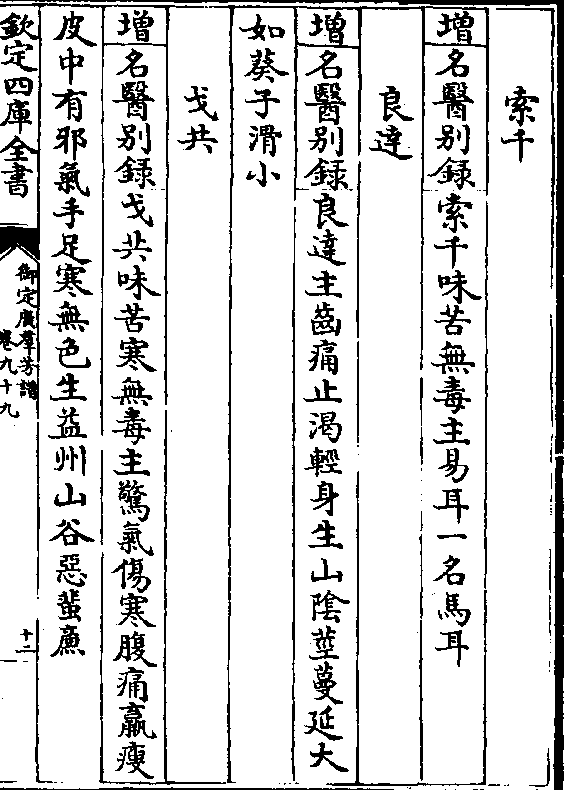 索千
增名醫别録索千味苦無毒主易耳一名馬耳
良達
增名醫别録良達主齒痛止渇輕身生山陰莖蔓延大
如葵子滑小
戈共
增名醫别録戈共味苦寒無毒主驚氣傷寒腹痛羸瘦
皮中有邪氣手足寒無色生益州山谷惡蜚廉
欽定四庫全書
御定廣羣芳譜
卷九十九
十二